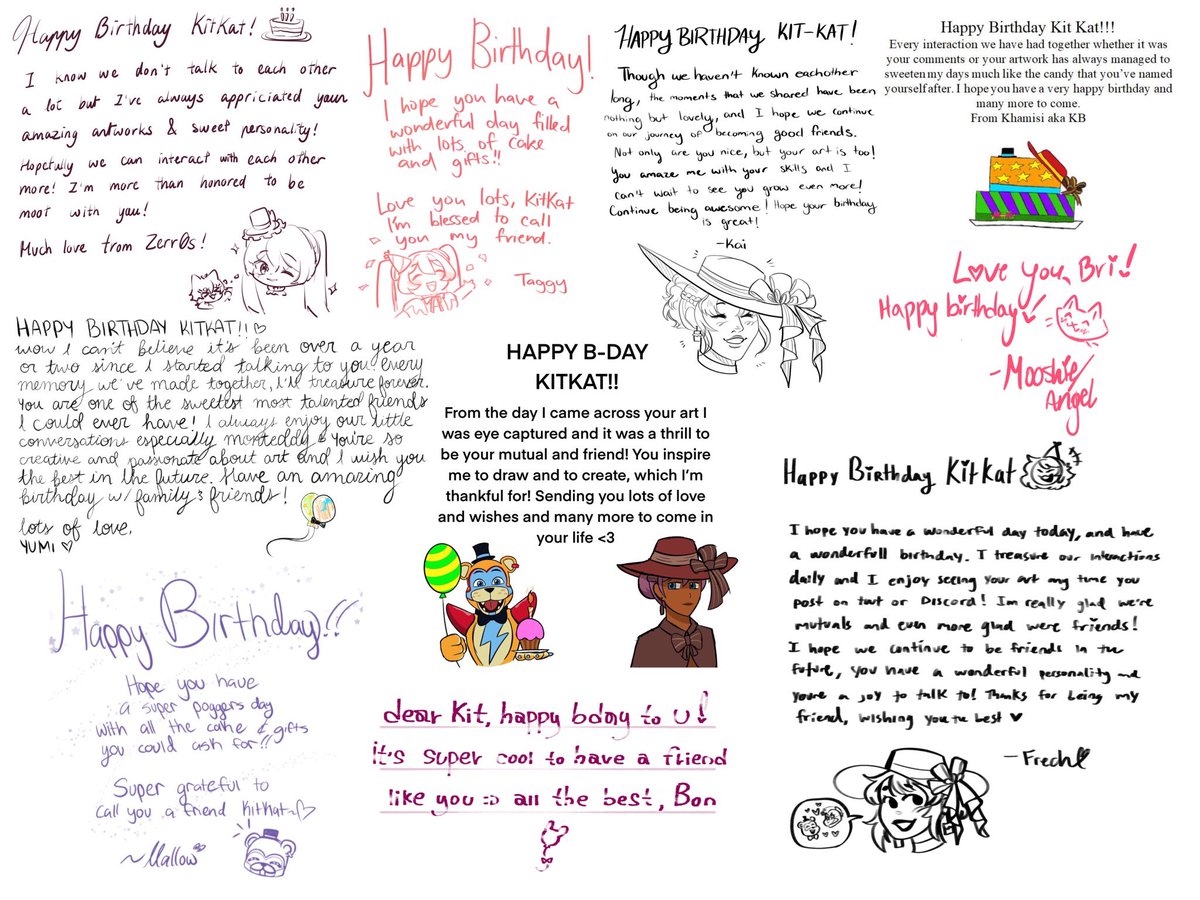 Happy Birthday KitKat!
I know we don't talk to each other
a lot but I've always appriciated your
amazing artworks & sweet personality!
Hopefully we can interact with each other
more! I'm more than honored to be
moot with you!
Much love from Zerr0s!
Happy Birthday!
I hope you have a
wonderful day filled
with lots of cake
and gifts!!
Love you lots, KitKat
I'm blessed to call
you my friend.
Taggy
HAPPY BIRTHDAY KIT-KAT!
Though we haven't known eachother
long, the moments that we shared have been
nothing but lovely, and I hope we continue
on our journey of becoming good friends.
Not only are you nice, but your art is too!
You amaze me with your skills and I
can't wait to see you grow even more!
Continue being awesome! Hope your birthday
is great!
-Kai
Happy Birthday Kit Kat!!!
Every interaction we have had together whether it was
your comments or your artwork has always managed to
sweeten my days much like the candy that you've named
yourself after. I hope you have a very happy birthday and
many more to come.
From Khamisi aka KB
Love you, Bri!
Happy birthday
-Mooshie
Angel
HAPPY BIRTHDAY KITKAT!!
wow I can't believe it's been over a year
or two since I started talking to you, every
memory we've made together, I'll treasure forever.
You are one of the sweetest most talented friends
I could ever have! I always enjoy our little
conversations especially monteddy & you're so
creative and passionate about art and I wish you
the best in the future. Have an amazing
birthday w/ family & friends!
lots of love,
YUMI
HAPPY B-DAY
KITKAT!!
From the day I came across your art I
was eye captured and it was a thrill to
be your mutual and friend! You inspire
me to draw and to create, which I'm
thankful for! Sending you lots of love
and wishes and many more to come in
your life <3
Happy Birthday KitKat
I hope you have a wonderful day today, and have
a wonderfull birthday. I treasure our interactions
daily and I enjoy seeing your art my time you
post on twt or Discord! Im really glad we're
mutuals and even more glad were friends!
I hope we continue to be friends in the
future, you have a wonderful personality and
youre a joy to talk to! Thanks for being my
friend, wishing you the best
Happy Birthday!!
Hope you have
a super poggers day
with all the cake & gifts
you could ask for!!
Super grateful to
call you a friend KitKat~
~Mallow
dear Kit, happy bday to u!
it's super cool to have a friend
like you =) all the best, Bon